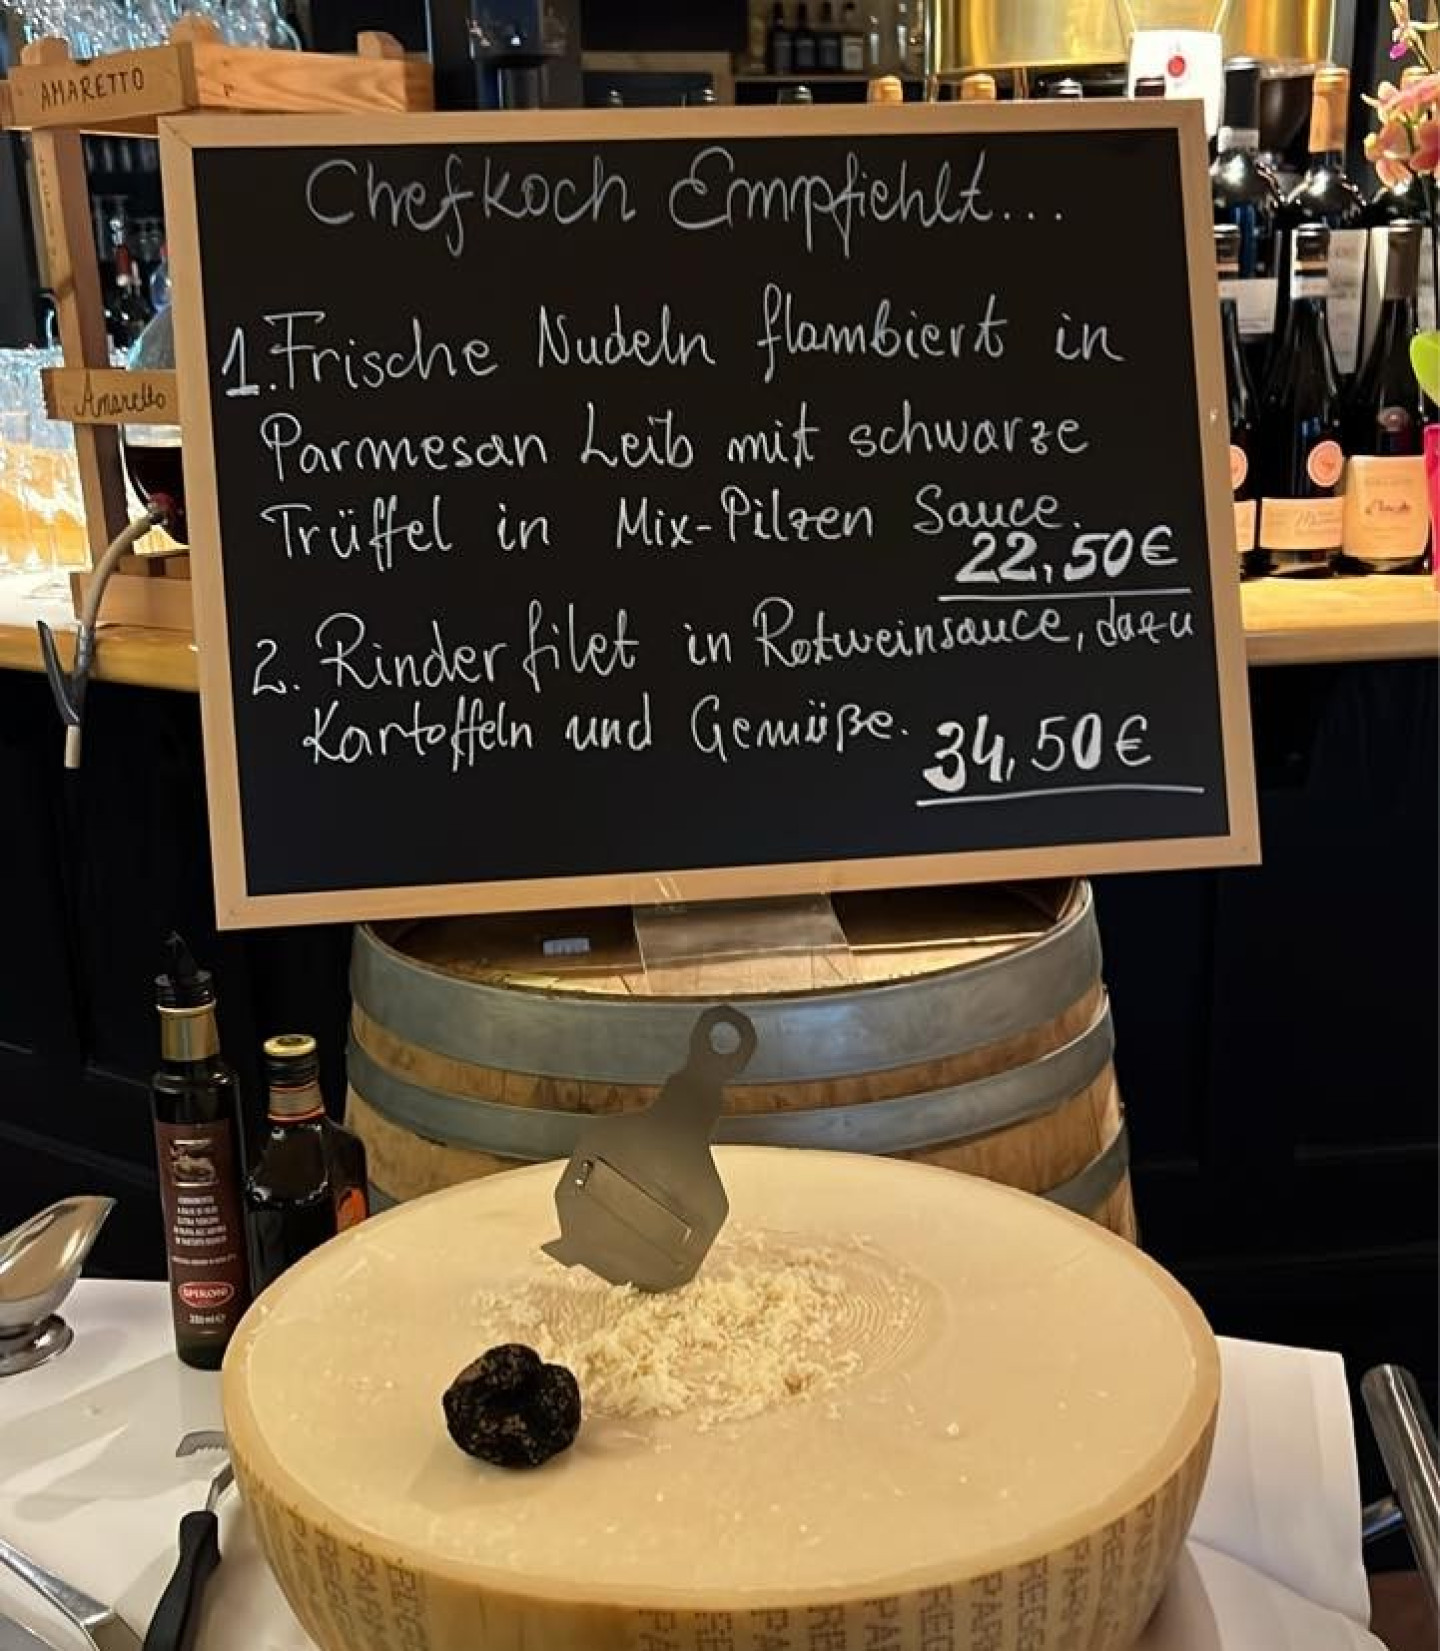 AMARETTO
Amaretto
Chefkoch Empfiehlt...
1. Frische Nudeln flambiert in
Parmesan Leib mit schwarze
Trüffel in Mix-Pilzen Sauce.
22,50€
2. Rinderfilet in Rotweinsauce, dazu
Kartoffeln und Gemüße.
34,50€